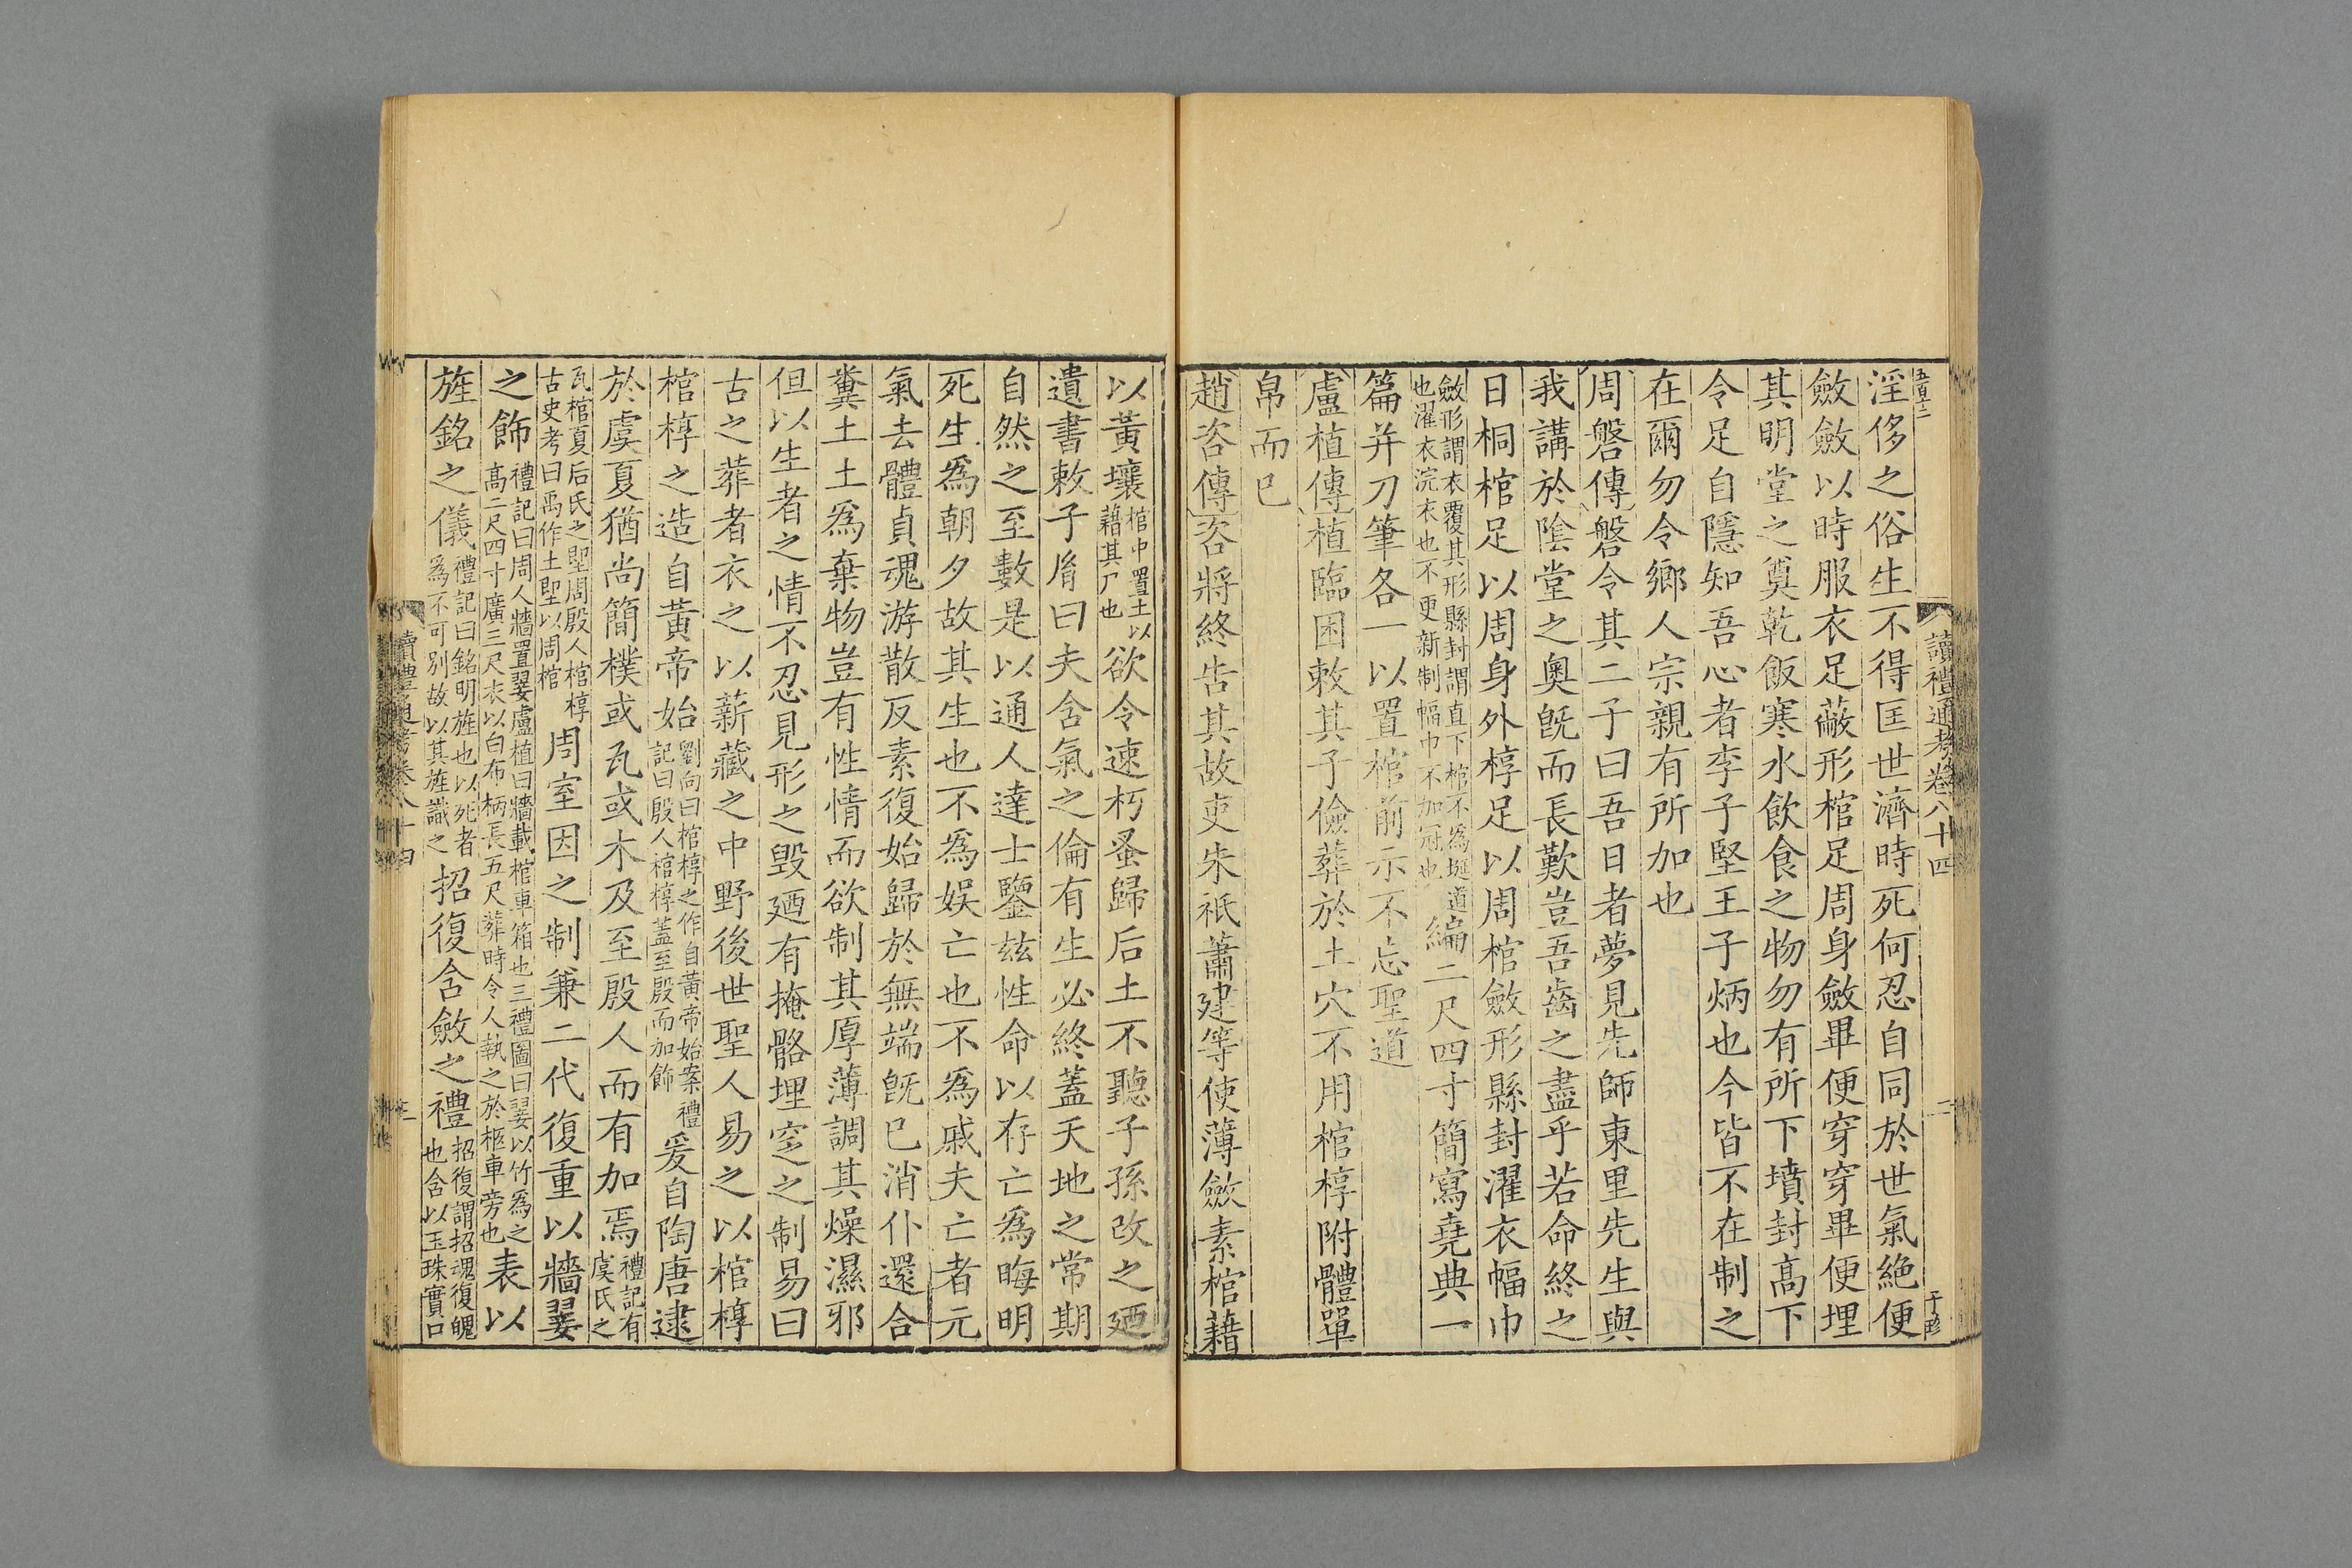 五百十二
讀禮通考卷八十四
二
淫侈之俗生不得匡世濟時死何忍自同於世氣絶便
斂斂以時服衣足蔽形棺足周身斂畢便穿穿畢便埋
其明堂之奠乾飯寒水飲食之物勿有所下墳封高下
令足自隱知吾心者李子堅王子炳也今皆不在制之
在爾勿令鄉人宗親有所加也
周磐傳磐令其二子曰吾日者夢見先師東里先生與
我講於陰堂之奧旣而長歎豈吾齒之盡乎若命終之
日桐棺足以周身外椁足以周棺斂形縣封濯衣幅巾
斂形謂衣覆其形縣封謂直下棺不為埏道
也濯衣浣衣也不更新制幅巾不加冠也
編二尺四寸簡寫堯典一
篇并刀筆各一以置棺前示不忘聖道
盧植傳植臨困敕其子儉葬於土穴不用棺椁附體單
帛而已
趙咨傳咨將終告其故吏朱祇蕭建等使薄斂素棺藉
以黃壤
棺中置土以
藉其尸也
欲令速朽蚤歸后土不聽子孫改之廼
遺書敕子𦙍曰夫含氣之倫有生必終蓋天地之常期
自然之至數是以通人達士鑒兹性命以存亡爲晦明
死生爲朝夕故其生也不爲娛亡也不爲戚夫亡者元
氣去體貞魂游散反素復始歸於無端旣已消仆還合
糞土土爲棄物豈有性情而欲制其厚薄調其燥濕邪
但以生者之情不忍見形之毁廼有掩骼埋窆之制易曰
古之葬者衣之以薪藏之中野後世聖人易之以棺椁
棺椁之造自黃帝始
劉向曰棺椁之作自黃帝始案禮
記曰殷人棺椁蓋至殷而加飾
爰自陶唐逮
於虞夏猶尚簡樸或瓦或木及至殷人而有加焉
禮記有
虞氏之
瓦棺夏后氏之堲周殷人棺椁
古史考曰禹作土堲以周棺
周室因之制兼二代復重以牆翣
之飾
禮記曰周人牆置翣盧植曰牆載棺車箱也三禮圖曰翣以竹爲之
高二尺四寸廣三尺衣以白布柄長五尺葬時令人執之於柩車旁也
表以
旌銘之儀
禮記曰銘明旌也以死者
爲不可別故以其旌識之
招復含斂之禮
招復謂招魂復魄
也含以玉珠實口
讀禮通考卷八十四
三